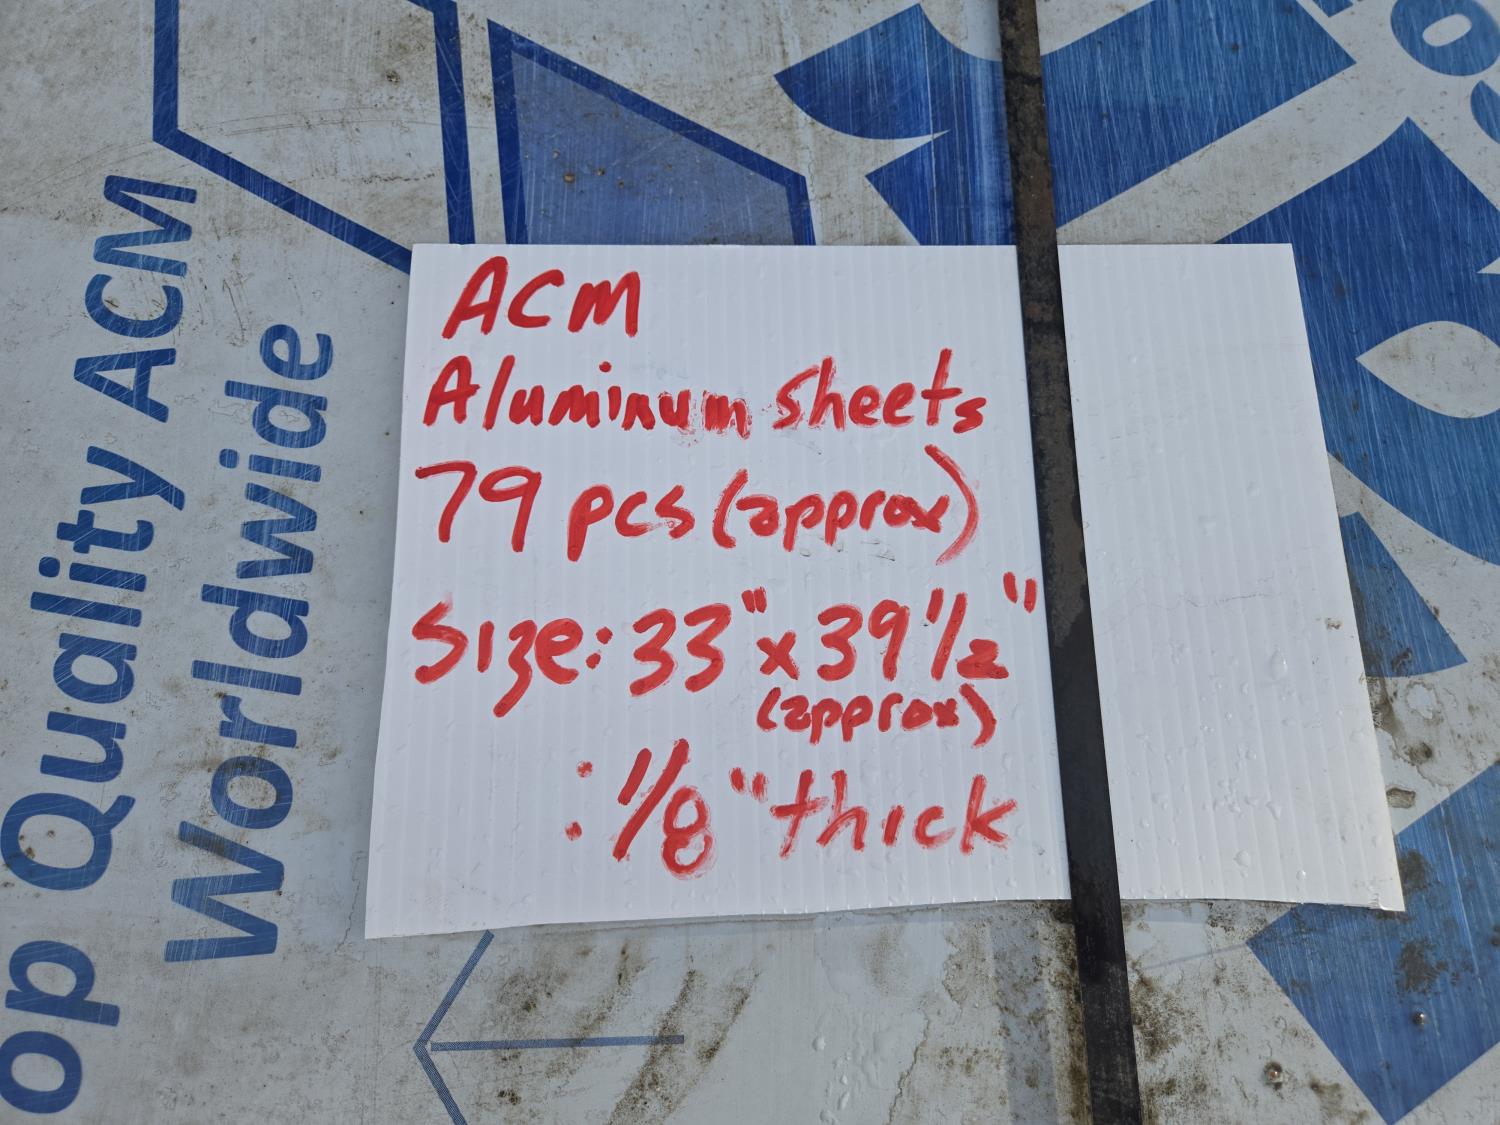 ACM
Aluminum Sheets
79 pcs (approx)
Size: 33" x 39 1/2"
(approx)
: 1/8" thick
op Quality ACM
Worldwide